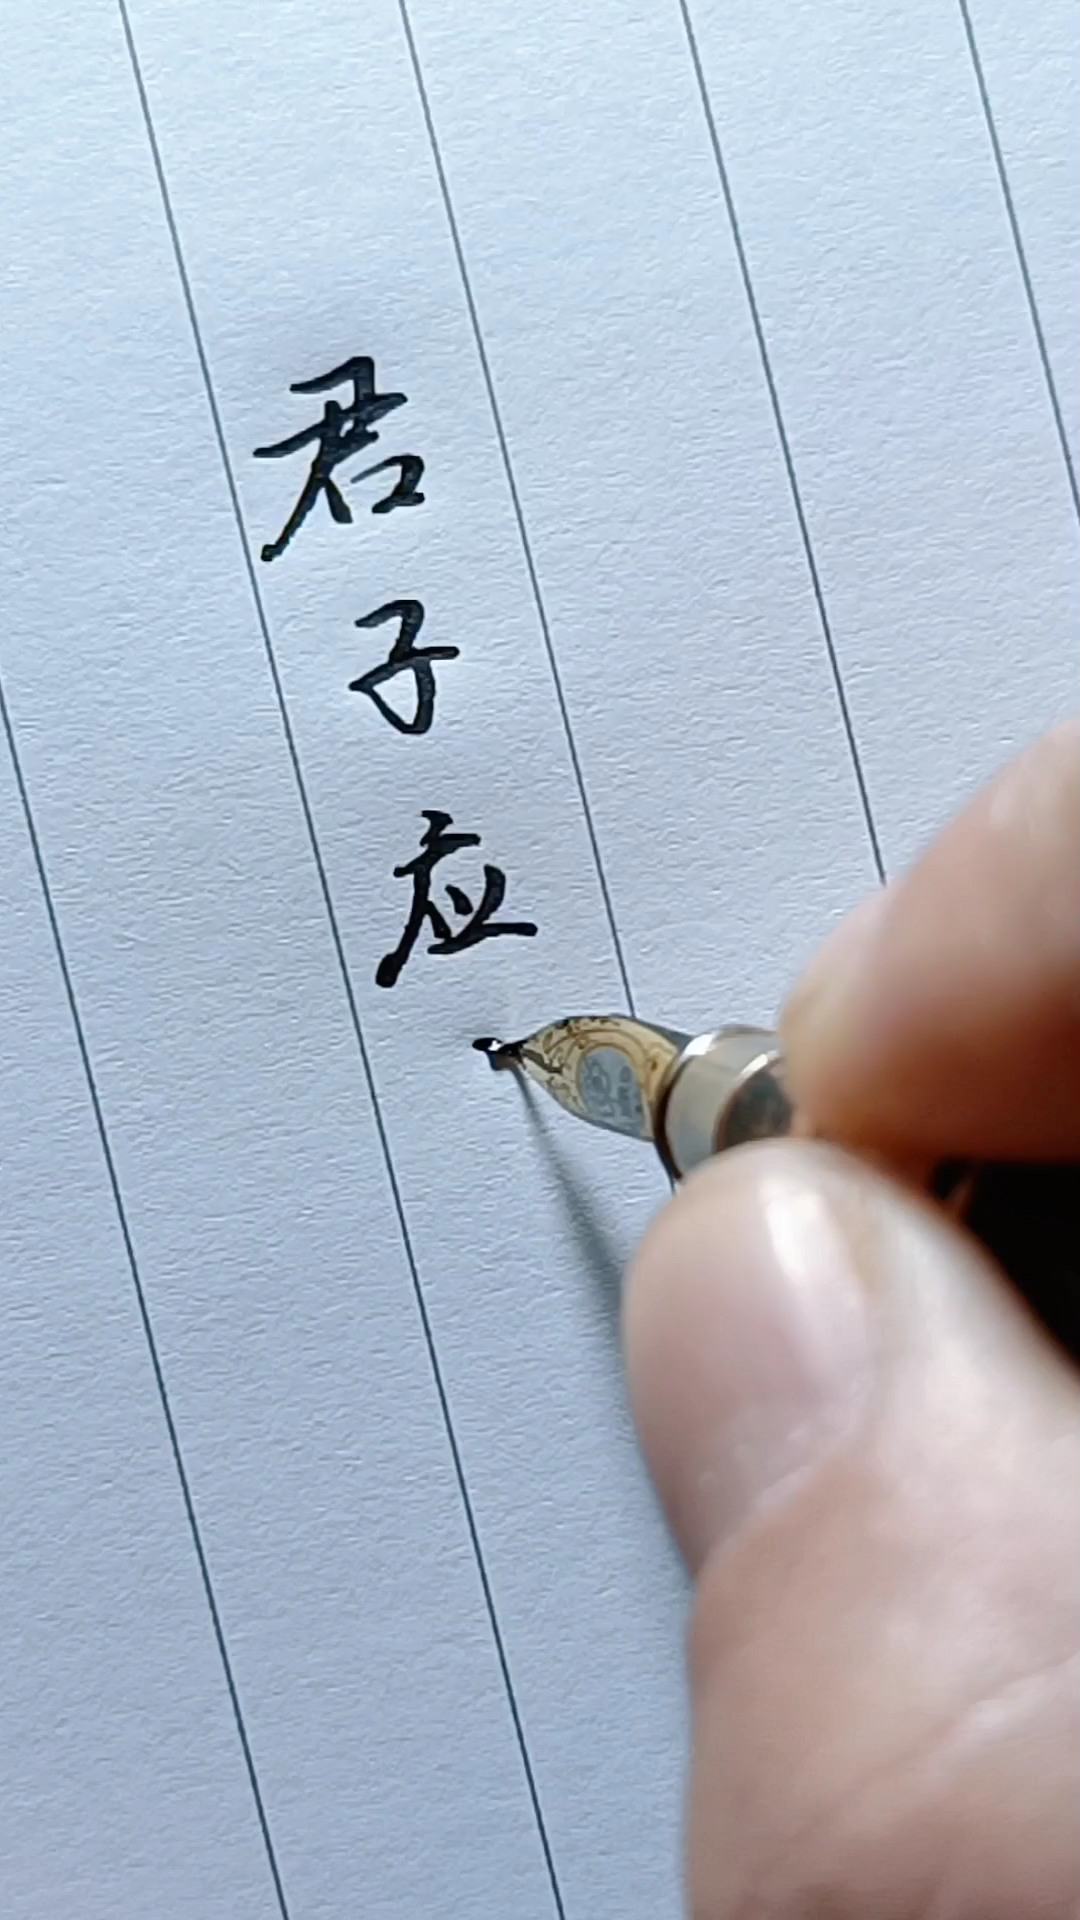 君子应